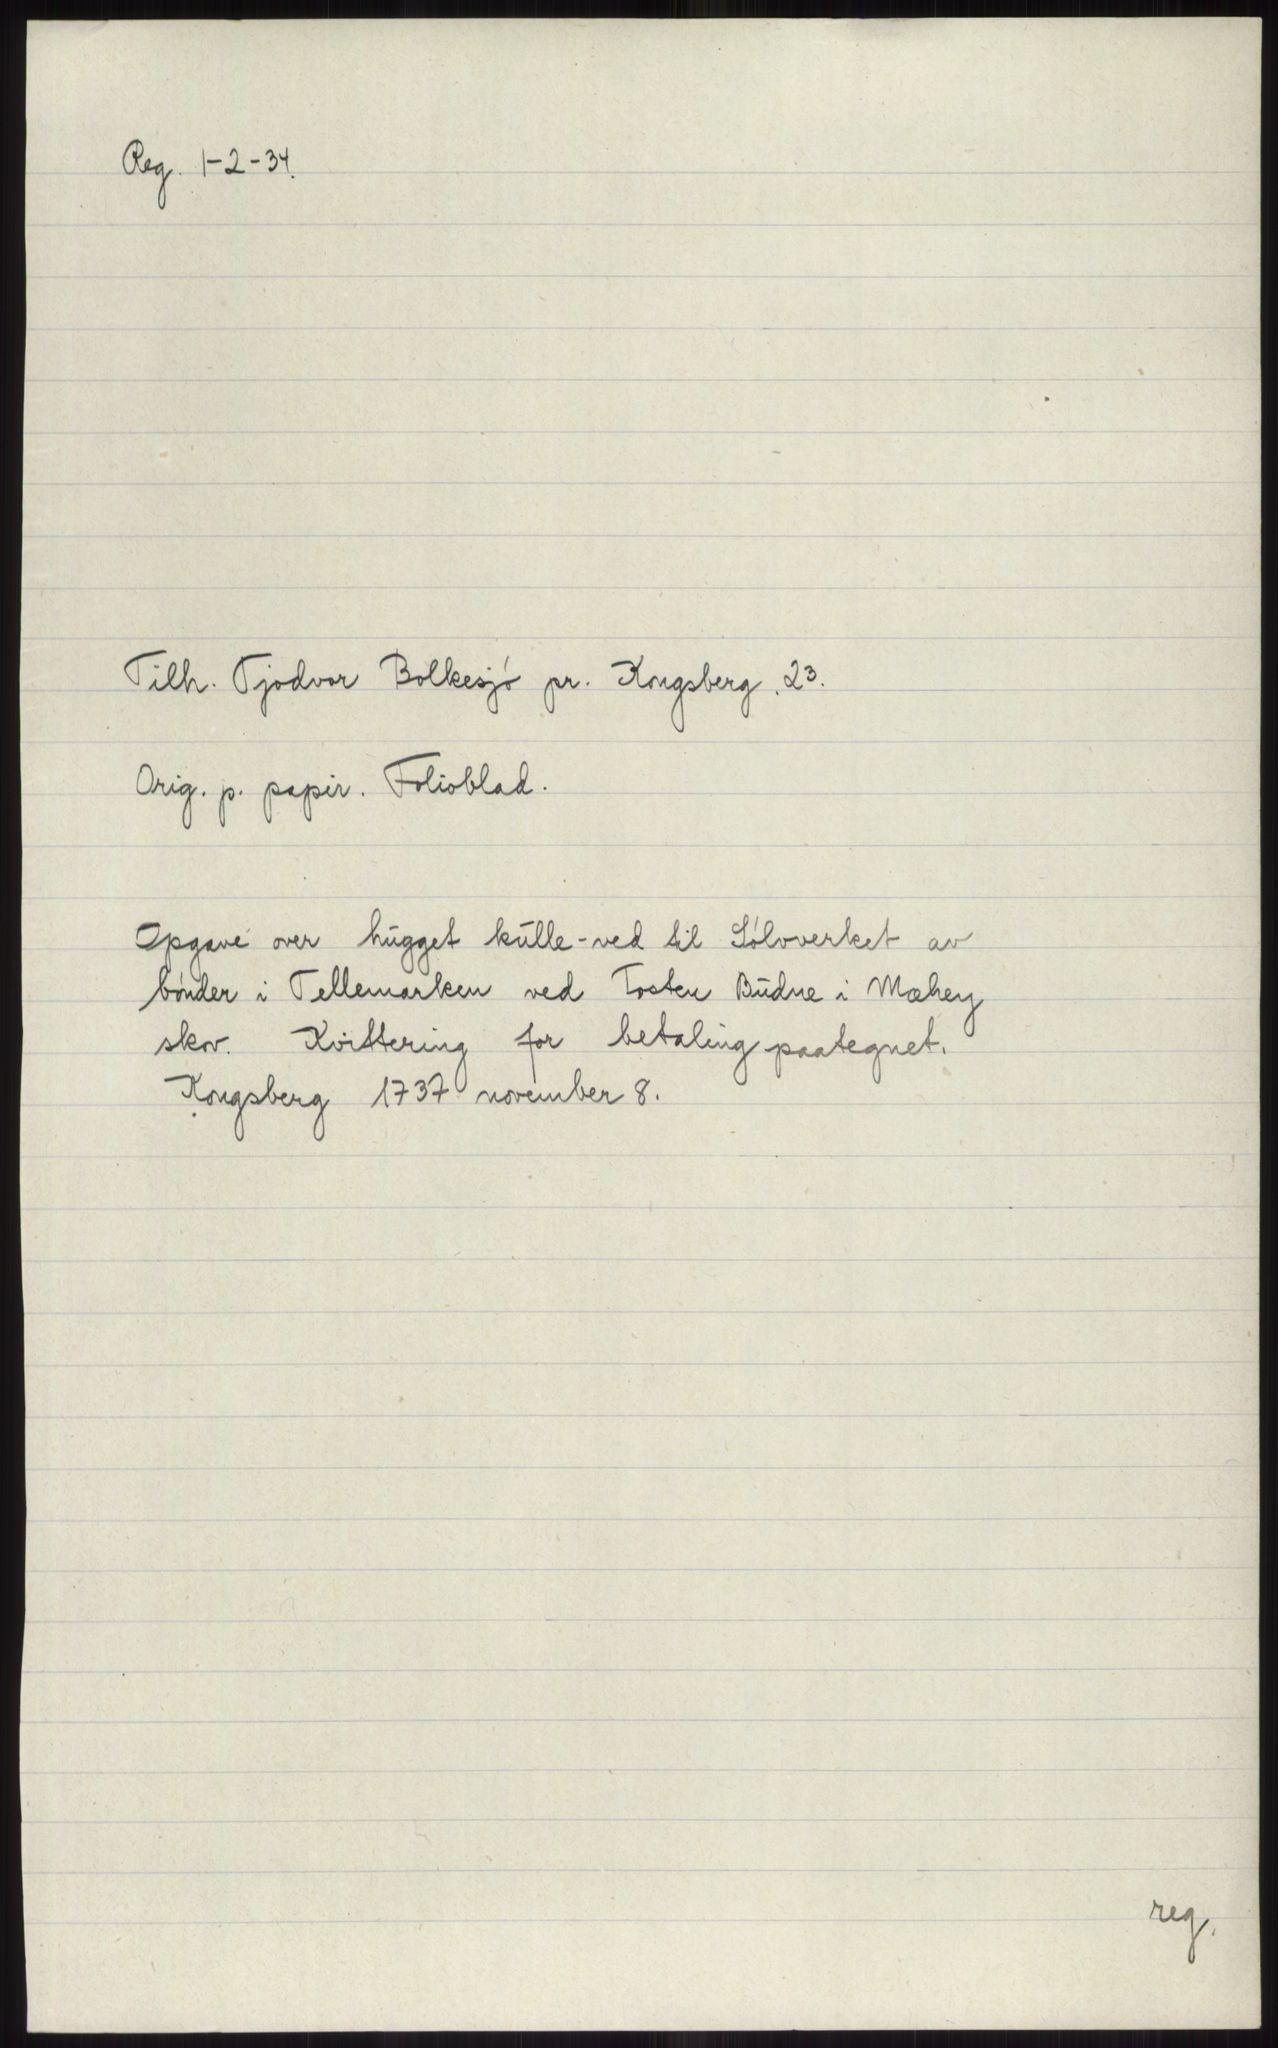 Reg. 1-2-34.
Tilh. Tjodvor Bolkesjø pr. Kongsberg. 23.
Orig. p. papir. Folioblad.
Opgave over hugget kulle-ved til Sølvverket av
bønder i Tellemarken ved Tosten Budne i Mæhey
skov. Kvittering for betaling paategnet.
Kongsberg 1737 november 8.
reg.